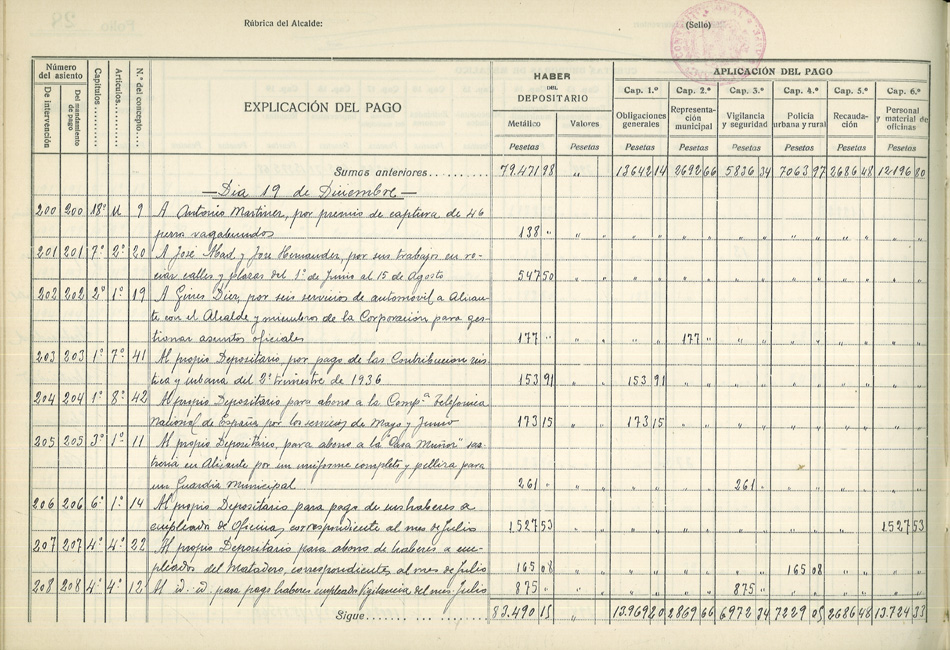 Rúbrica del Alcalde: (Sello)
Número del asiento Capítulos Artículos N.º del concepto EXPLICACIÓN DEL PAGO HABER DEL DEPOSITARIO APLICACIÓN DEL PAGO
De intervención Del mandamiento de pago Metálico Valores Cap. 1.º Cap. 2.º Cap. 3.º Cap. 4.º Cap. 5.º Cap. 6.º
Obligaciones generales Representación municipal Vigilancia y seguridad Policía urbana y rural Recaudación Personal y material de oficinas
Pesetas Pesetas Pesetas Pesetas Pesetas Pesetas Pesetas Pesetas
Sumas anteriores 79.471 98 " 13642 14 2692 66 5836 34 7063 97 2686 48 12196 80
—Día 19 de Diciembre—
200 200 18º U 9 A Antonio Martinez, por premio de captura de 46
perros vagabundos 138 " " " " " " " "
201 201 7º 2º 20 A José Abad y José Hernandez, por sus trabajos en ro-
ciar calles y plazas del 1º de Junio al 15 de Agosto 547 50 " " " " " " "
202 202 2º 1º 19 A Ginés Diez, por seis servicios de automóvil a Alican-
te con el Alcalde y miembros de la Corporación para ges-
tionar asuntos oficiales 177 " " " 177 " " " " "
203 203 1º 7º 41 Al propio Depositario, por pago de las Contribucion rus-
tica y urbana del 3º trimestre de 1936 153 91 " 153 91 " " " " "
204 204 1º 8º 42 Al propio Depositario para abono a la Comp.ª Telefonica
Nacional de España por los servicios de Mayo y Junio 173 15 " 173 15 " " " " "
205 205 3º 1º 11 Al propio Depositario, para abono a la "Casa Muñoz" sas-
treria en Alicante por un uniforme completo y pelliza para
un Guardia Municipal 261 " " " " 261 " " " "
206 206 6º 1º 14 Al propio Depositario para pago de sus haberes a
empleados de Oficinas, correspondiente al mes de Julio 1.527 53 " " " " " " 1.527 53
207 207 4º 4º 22 Al propio Depositario para abono de haberes a em-
pleados del Matadero, correspondientes al mes de Julio 165 08 " " " " 165 08 " "
208 208 4º 4º 12 Al id. id. para pago haberes empleados Vigilancia del mes Julio 875 " " " " 875 " " " "
Sigue 83.490 15 " 13.969 20 2869 66 6972 34 7229 05 2686 48 13.724 33